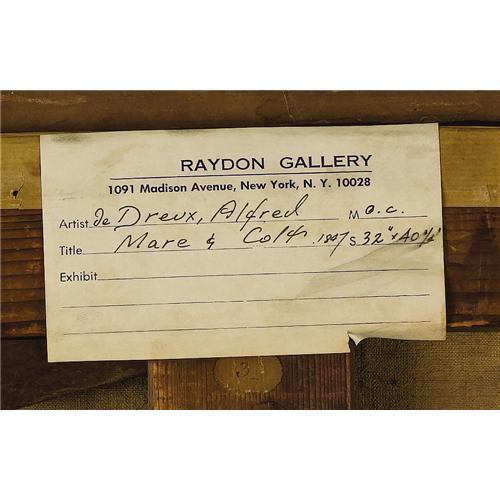 RAYDON GALLERY
1091 Madison Avenue, New York, N. Y. 10028
Artist de Dreux, Alfred M o.c.
Title Mare & Colt S 32" x 40½"
Exhibit
3